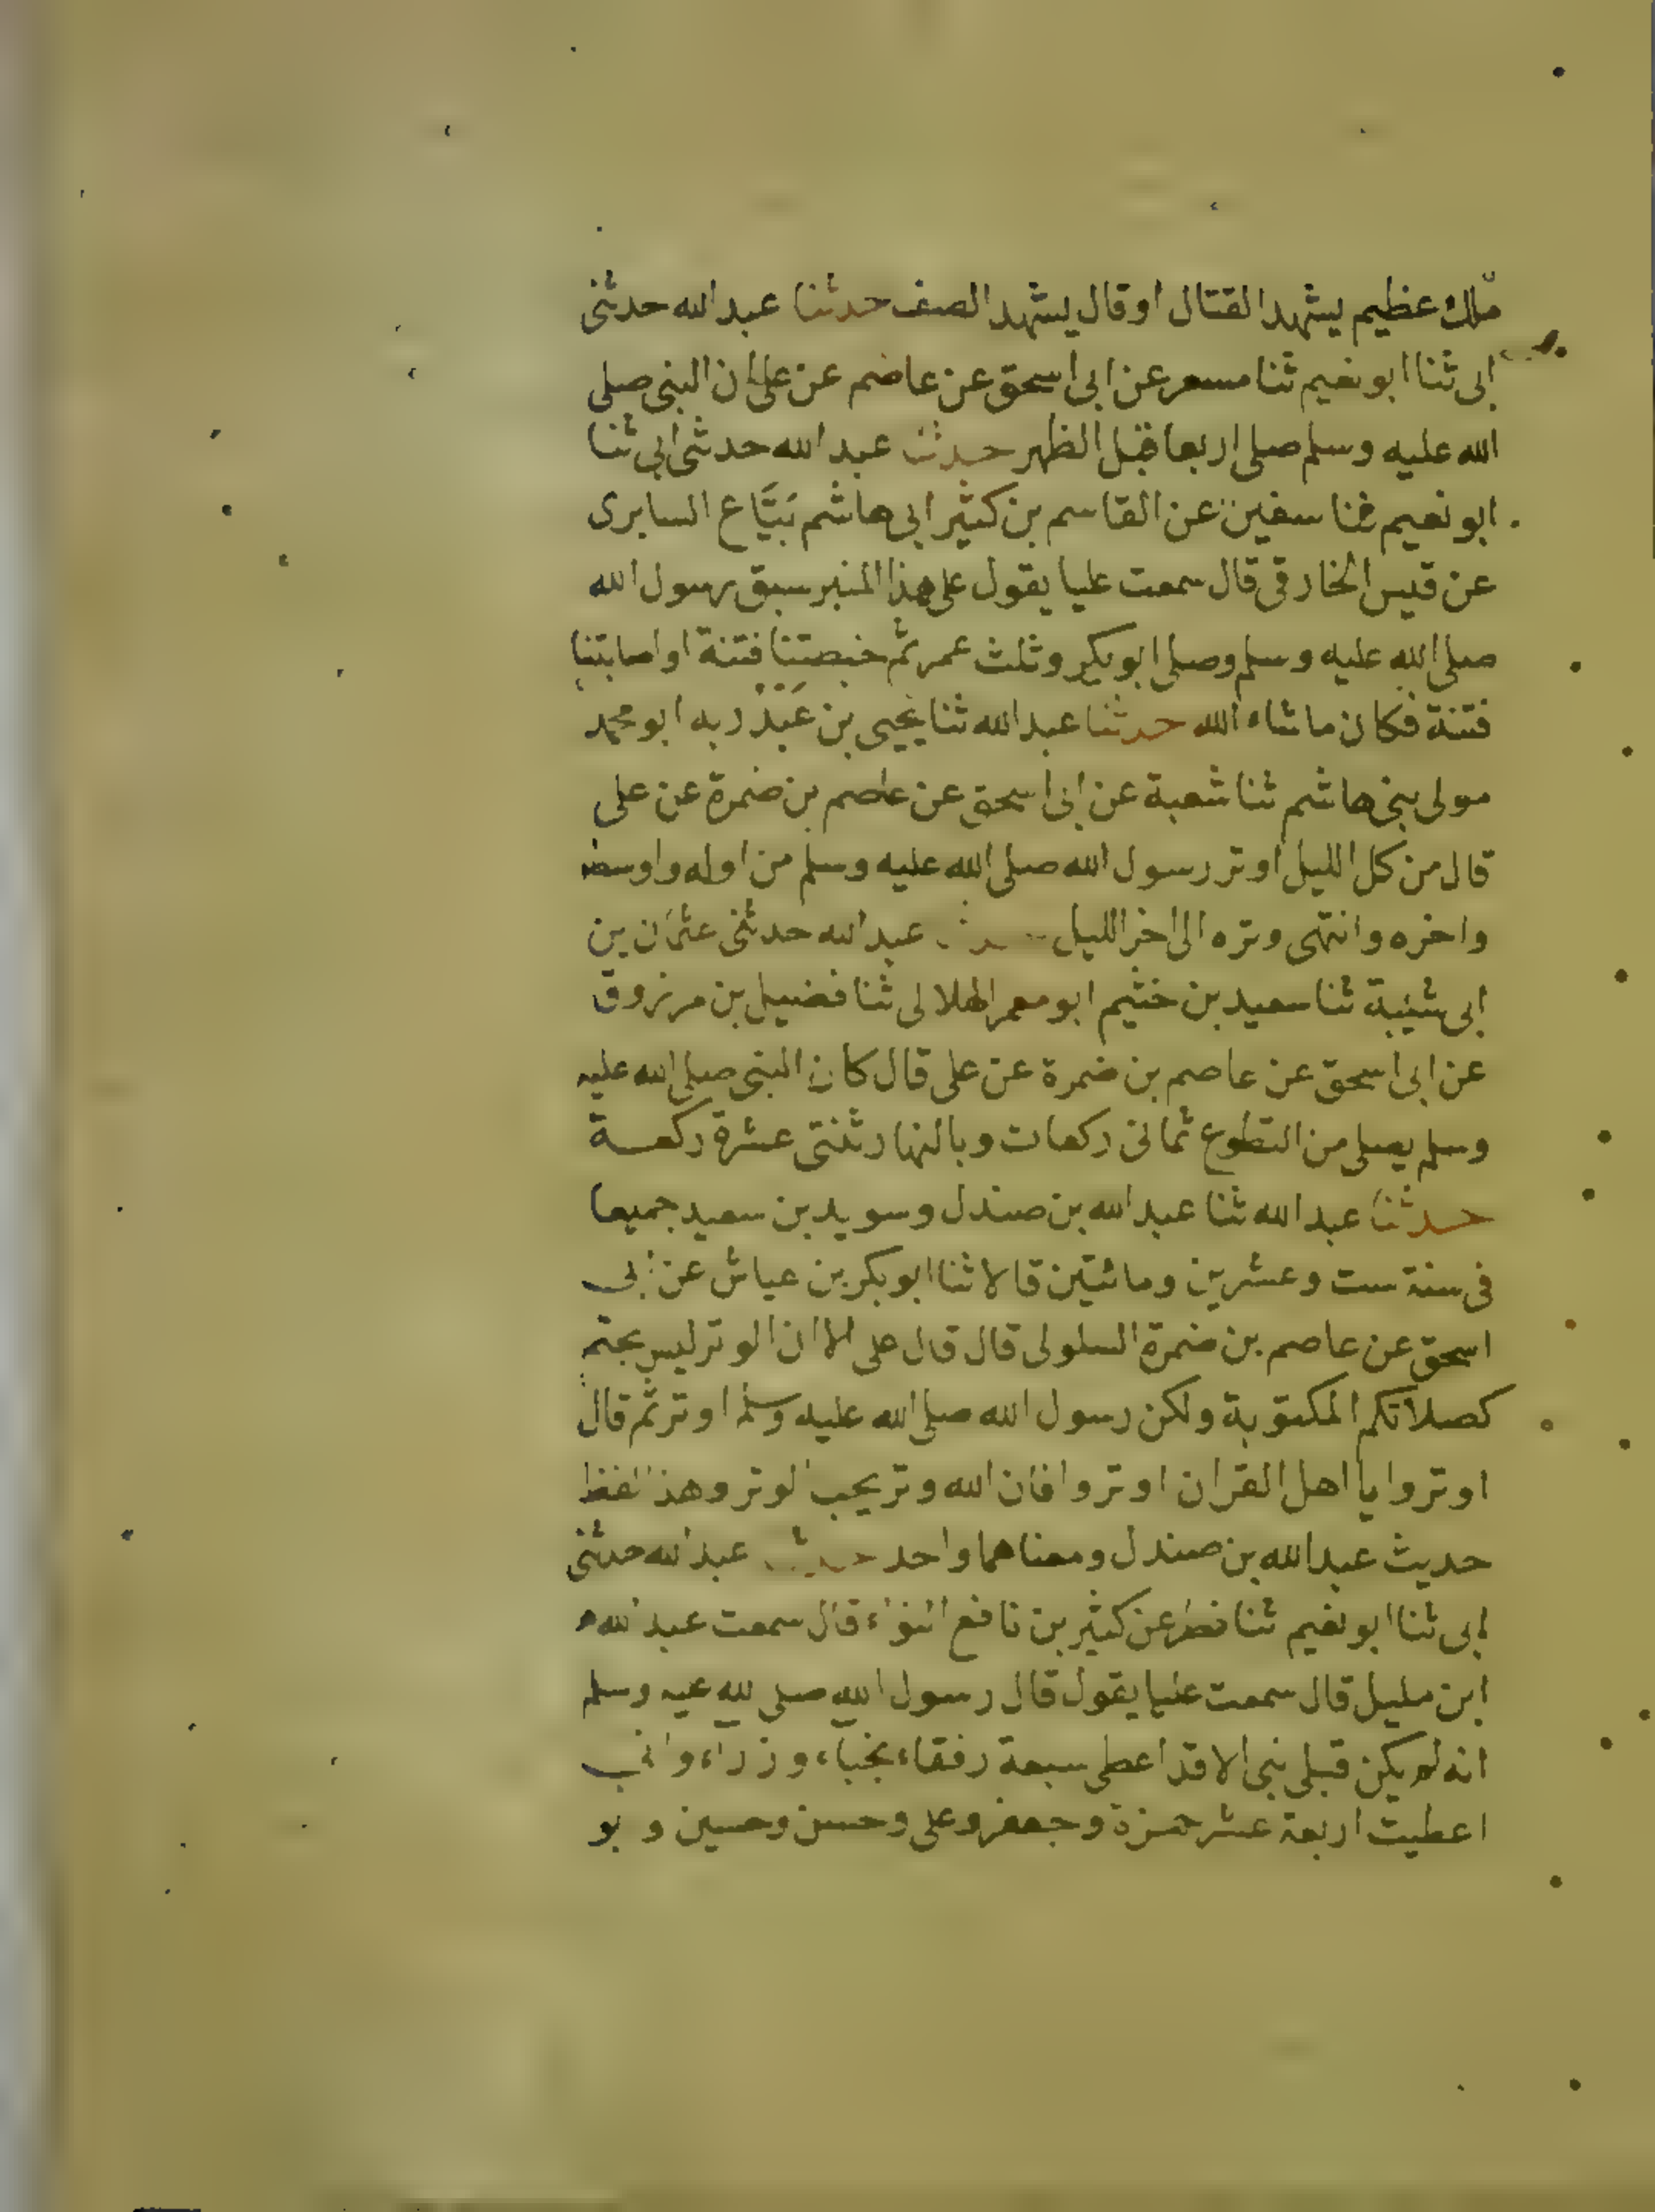 ملك عظيم يشهد القتال او قال يشهد الصف حدثنا عبد الله حدثنى
ابى ثنا ابو نعيم ثنا مسعر عن ابى اسحق عن عاصم عن على ان النبى صلى
الله عليه وسلم صلى اربعا قبل الظهر حدثنا عبد الله حدثنى ابى ثنا
ابو نعيم ثنا سفين عن القاسم بن كثير ابى هاشم بَيَّاع السابرى
عن قيس الخارفى قال سمعت عليا يقول على هذا المنبر سبق رسول الله
صلى الله عليه وسلم وصلى ابو بكر وثلث عمر ثم خبطتنا فتنة او اصابتنا
فتنة فكان ما شاء الله حدثنا عبد الله ثنا يحيى بن عَبْدَرَبه ابو محمد
مولى بنى هاشم ثنا شعبة عن ابى اسحق عن عاصم بن ضمرة عن على
قال من كل الليل اوتر رسول الله صلى الله عليه وسلم من اوله واوسطه
واخره وانتهى وتره الى اخر الليل حدثنا عبد الله حدثنى عثمان بن
ابى شيبة ثنا سعيد بن خثيم ابو معمر الهلالى ثنا فضيل بن مرزوق
عن ابى اسحق عن عاصم بن ضمرة عن على قال كان النبى صلى الله عليه
وسلم يصلى من التطوع ثمانى ركعات وبالنهار ثنتى عشرة ركعة
حدثنا عبد الله ثنا عبد الله بن صندل وسويد بن سعيد جميعا
فى سنة ست وعشرين ومائتين قالا ثنا ابو بكر بن عياش عن ابى
اسحق عن عاصم بن ضمرة السلولى قال قال على الا ان الوتر ليس بحتم
كصلاتكم المكتوبة ولكن رسول الله صلى الله عليه وسلم اوتر ثم قال
اوتروا يا اهل القران اوتروا فان الله وتر يحب الوتر وهذا لفظ
حديث عبد الله بن صندل ومعناهما واحد حدثنا عبد الله حدثنى
ابى ثنا ابو نعيم ثنا فطر عن كثير بن نافع النواء قال سمعت عبد الله
ابن مليل قال سمعت عليا يقول قال رسول الله صلى الله عليه وسلم
انه لم يكن قبلى نبى الا قد اعطى سبعة رفقاء نجباء وزراء وانى
اعطيت اربعة عشر حمزة وجعفر وعلى وحسن وحسين وابو